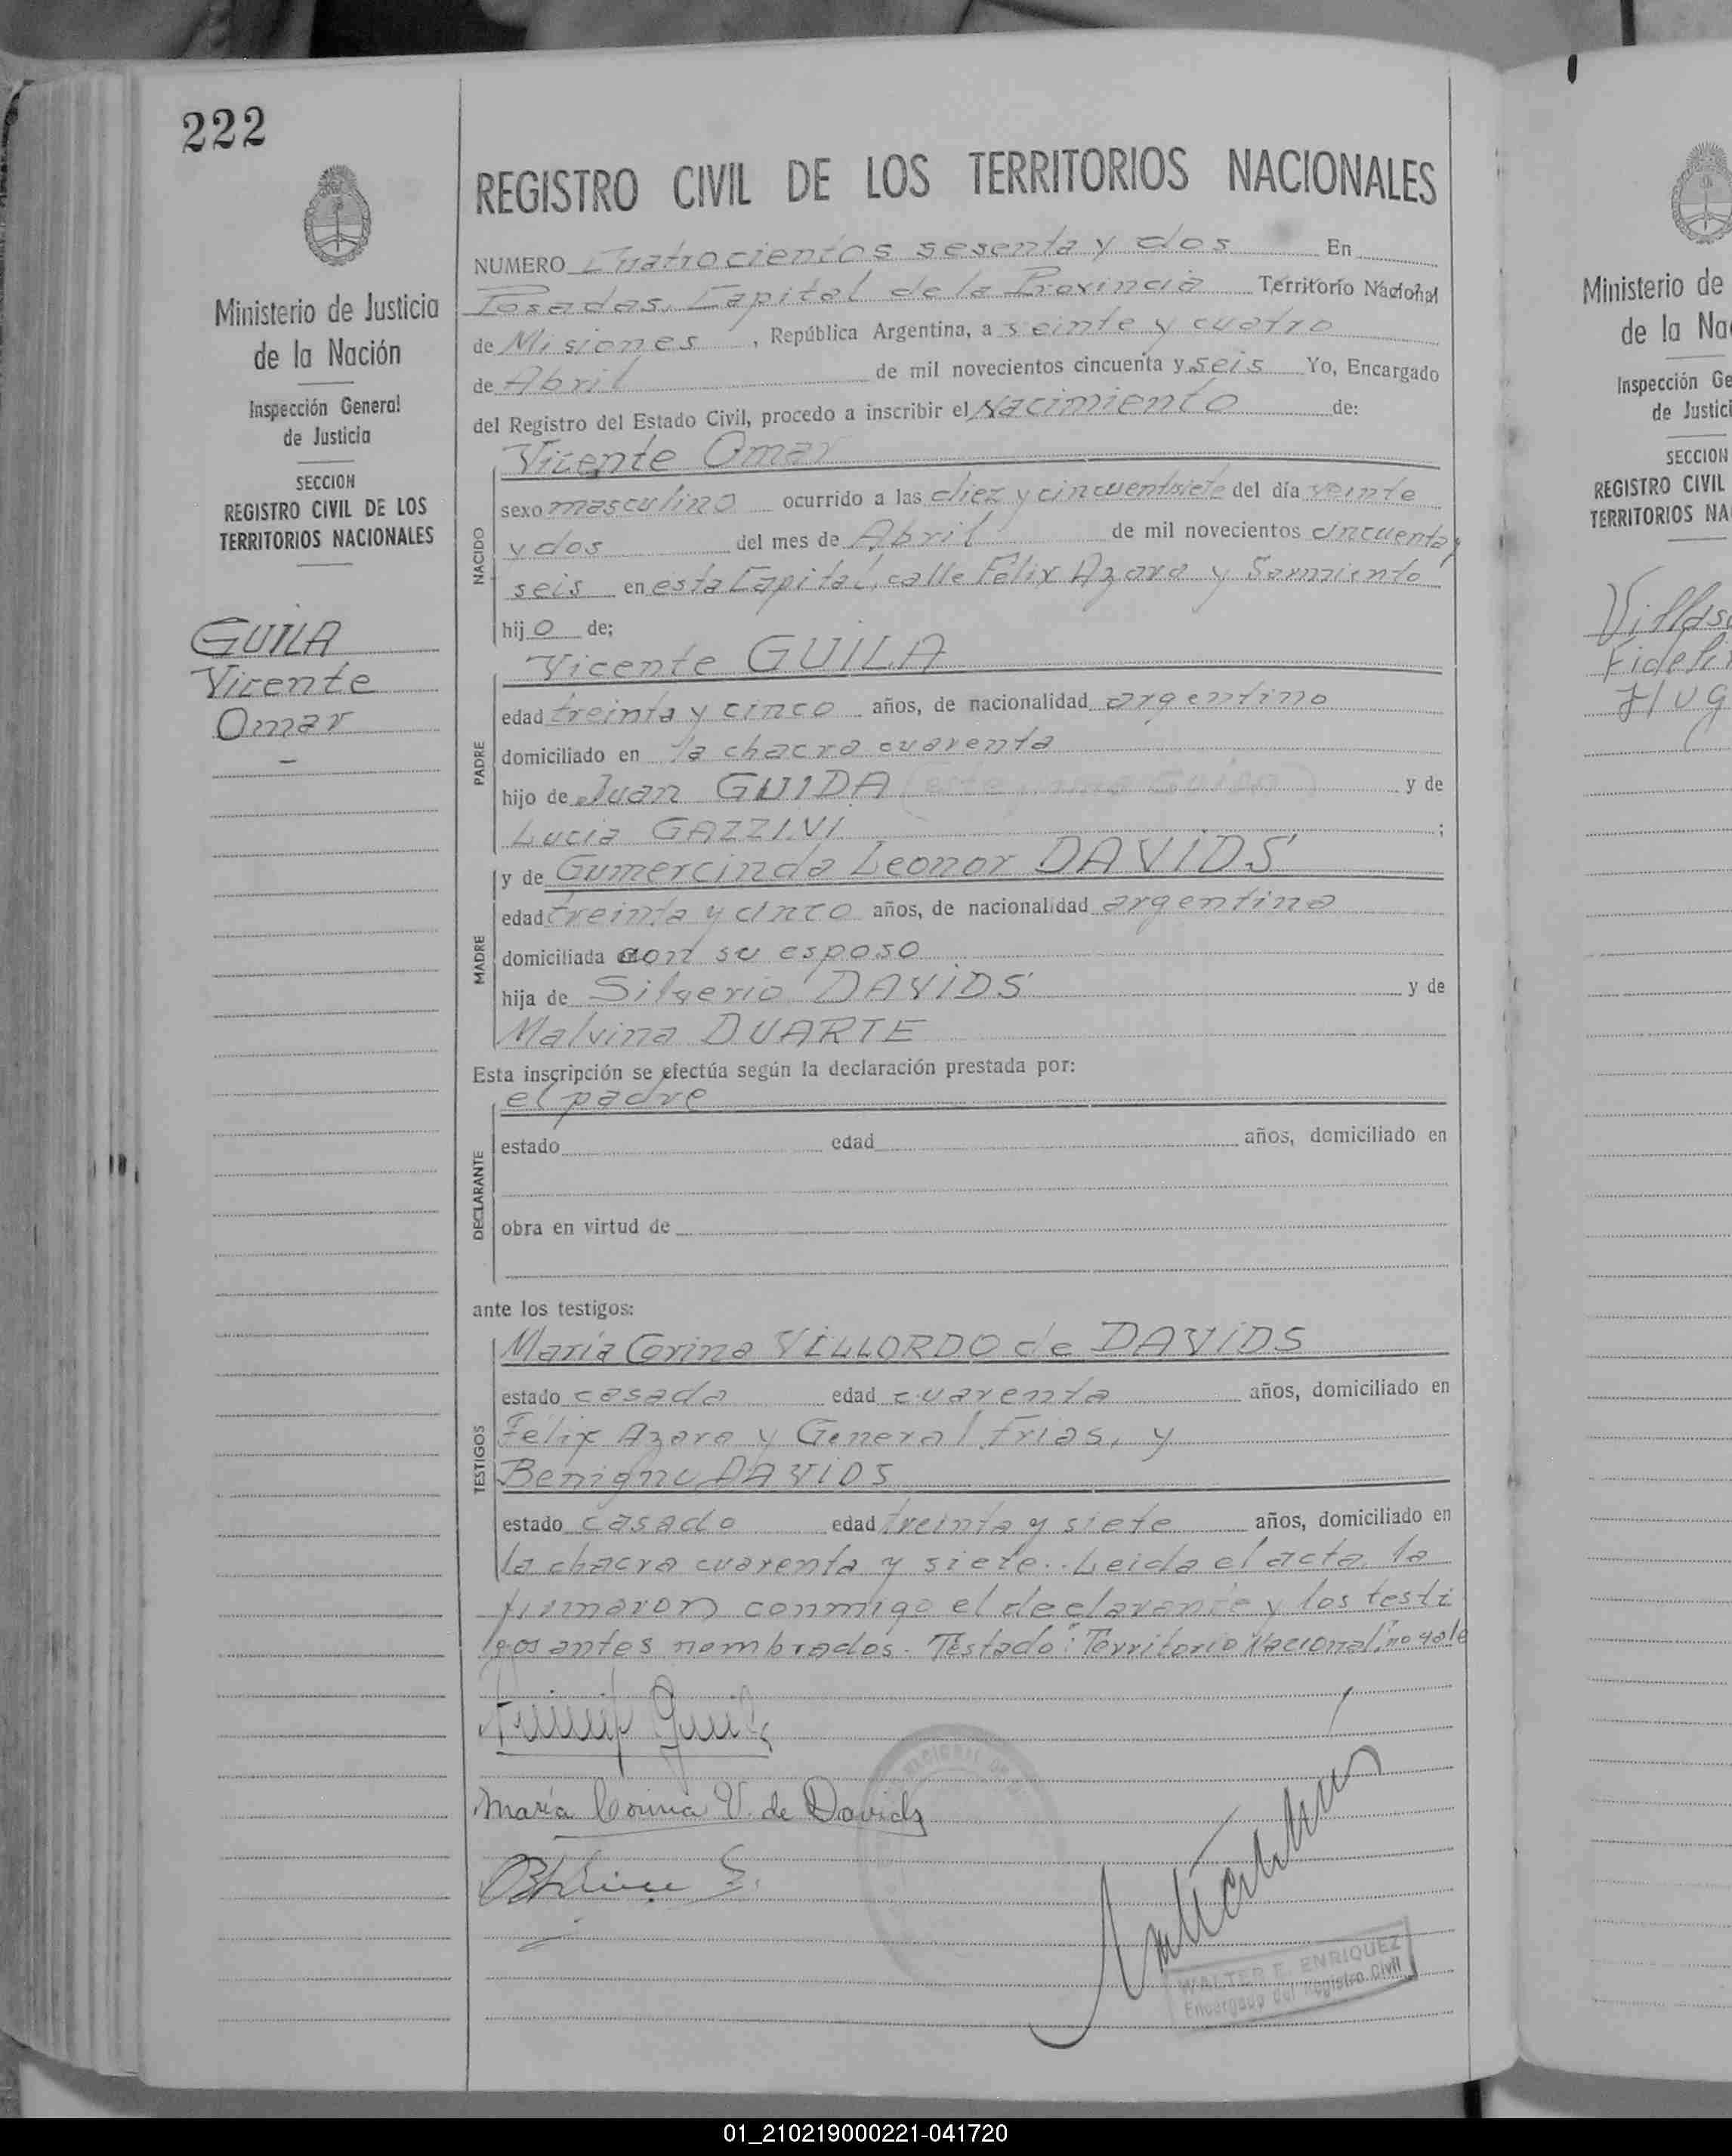 222
REGISTRO CIVIL DE LOS TERRITORIOS NACIONALES
Ministerio de Justicia
de la Nación
Inspección General
de Justicia
SECCION
REGISTRO CIVIL DE LOS
TERRITORIOS NACIONALES
GUILA
Vicente
Omar
NUMERO Cuatrocientos sesenta y dos En
Posadas, Capital de la Provincia Territorio Nacional
de Misiones, República Argentina, a veinte y cuatro
de Abril de mil novecientos cincuenta y seis Yo, Encargado
del Registro del Estado Civil, procedo a inscribir el Nacimiento de:
NACIDO
Vicente Omar
sexo masculino ocurrido a las diez y cincuentisiete del día veinte
y dos del mes de Abril de mil novecientos cincuenta y
seis en esta Capital, calle Félix Azara y Sarmiento
hijo de;
PADRE
Vicente GUILA
edad treinta y cinco años, de nacionalidad argentino
domiciliado en la chacra cuarenta
hijo de Juan GUIDA y de
Lucia GAZZINI;
MADRE
y de Gumercinda Leonor DAVIDS
edad treinta y cinco años, de nacionalidad argentina
domiciliada con su esposo
hija de Silverio DAVIDS y de
Malvina DUARTE
Esta inscripción se efectúa según la declaración prestada por:
DECLARANTE
el padre
estado edad años, domiciliado en
obra en virtud de
ante los testigos:
TESTIGOS
María Corina VILLORDO de DAVIDS
estado casada edad cuarenta años, domiciliado en
Félix Azara y General Frias, y
Benigno DAVIDS
estado casado edad treinta y siete años, domiciliado en
la chacra cuarenta y siete.. Leida el acta la
firmaron conmigo el declarante y los testi
gos antes nombrados. Testado: "Territorio Nacional", no vale
María Corina V. de Davids
WALTER E. ENRIQUEZ
Encargado del Registro Civil
Ministerio de
de la Na
Inspección Ge
de Justici
SECCION
REGISTRO CIVIL
TERRITORIOS NA
01_210219000221-041720